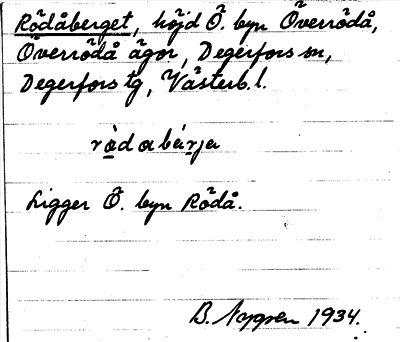 Rödåberget, höjd Ö. byn Överrödå,
Överrödå ägor, Degerfors sn,
Degerfors tg, Västerb. l.
ròdabárja
Ligger Ö. byn Rödå.
B. 1934.